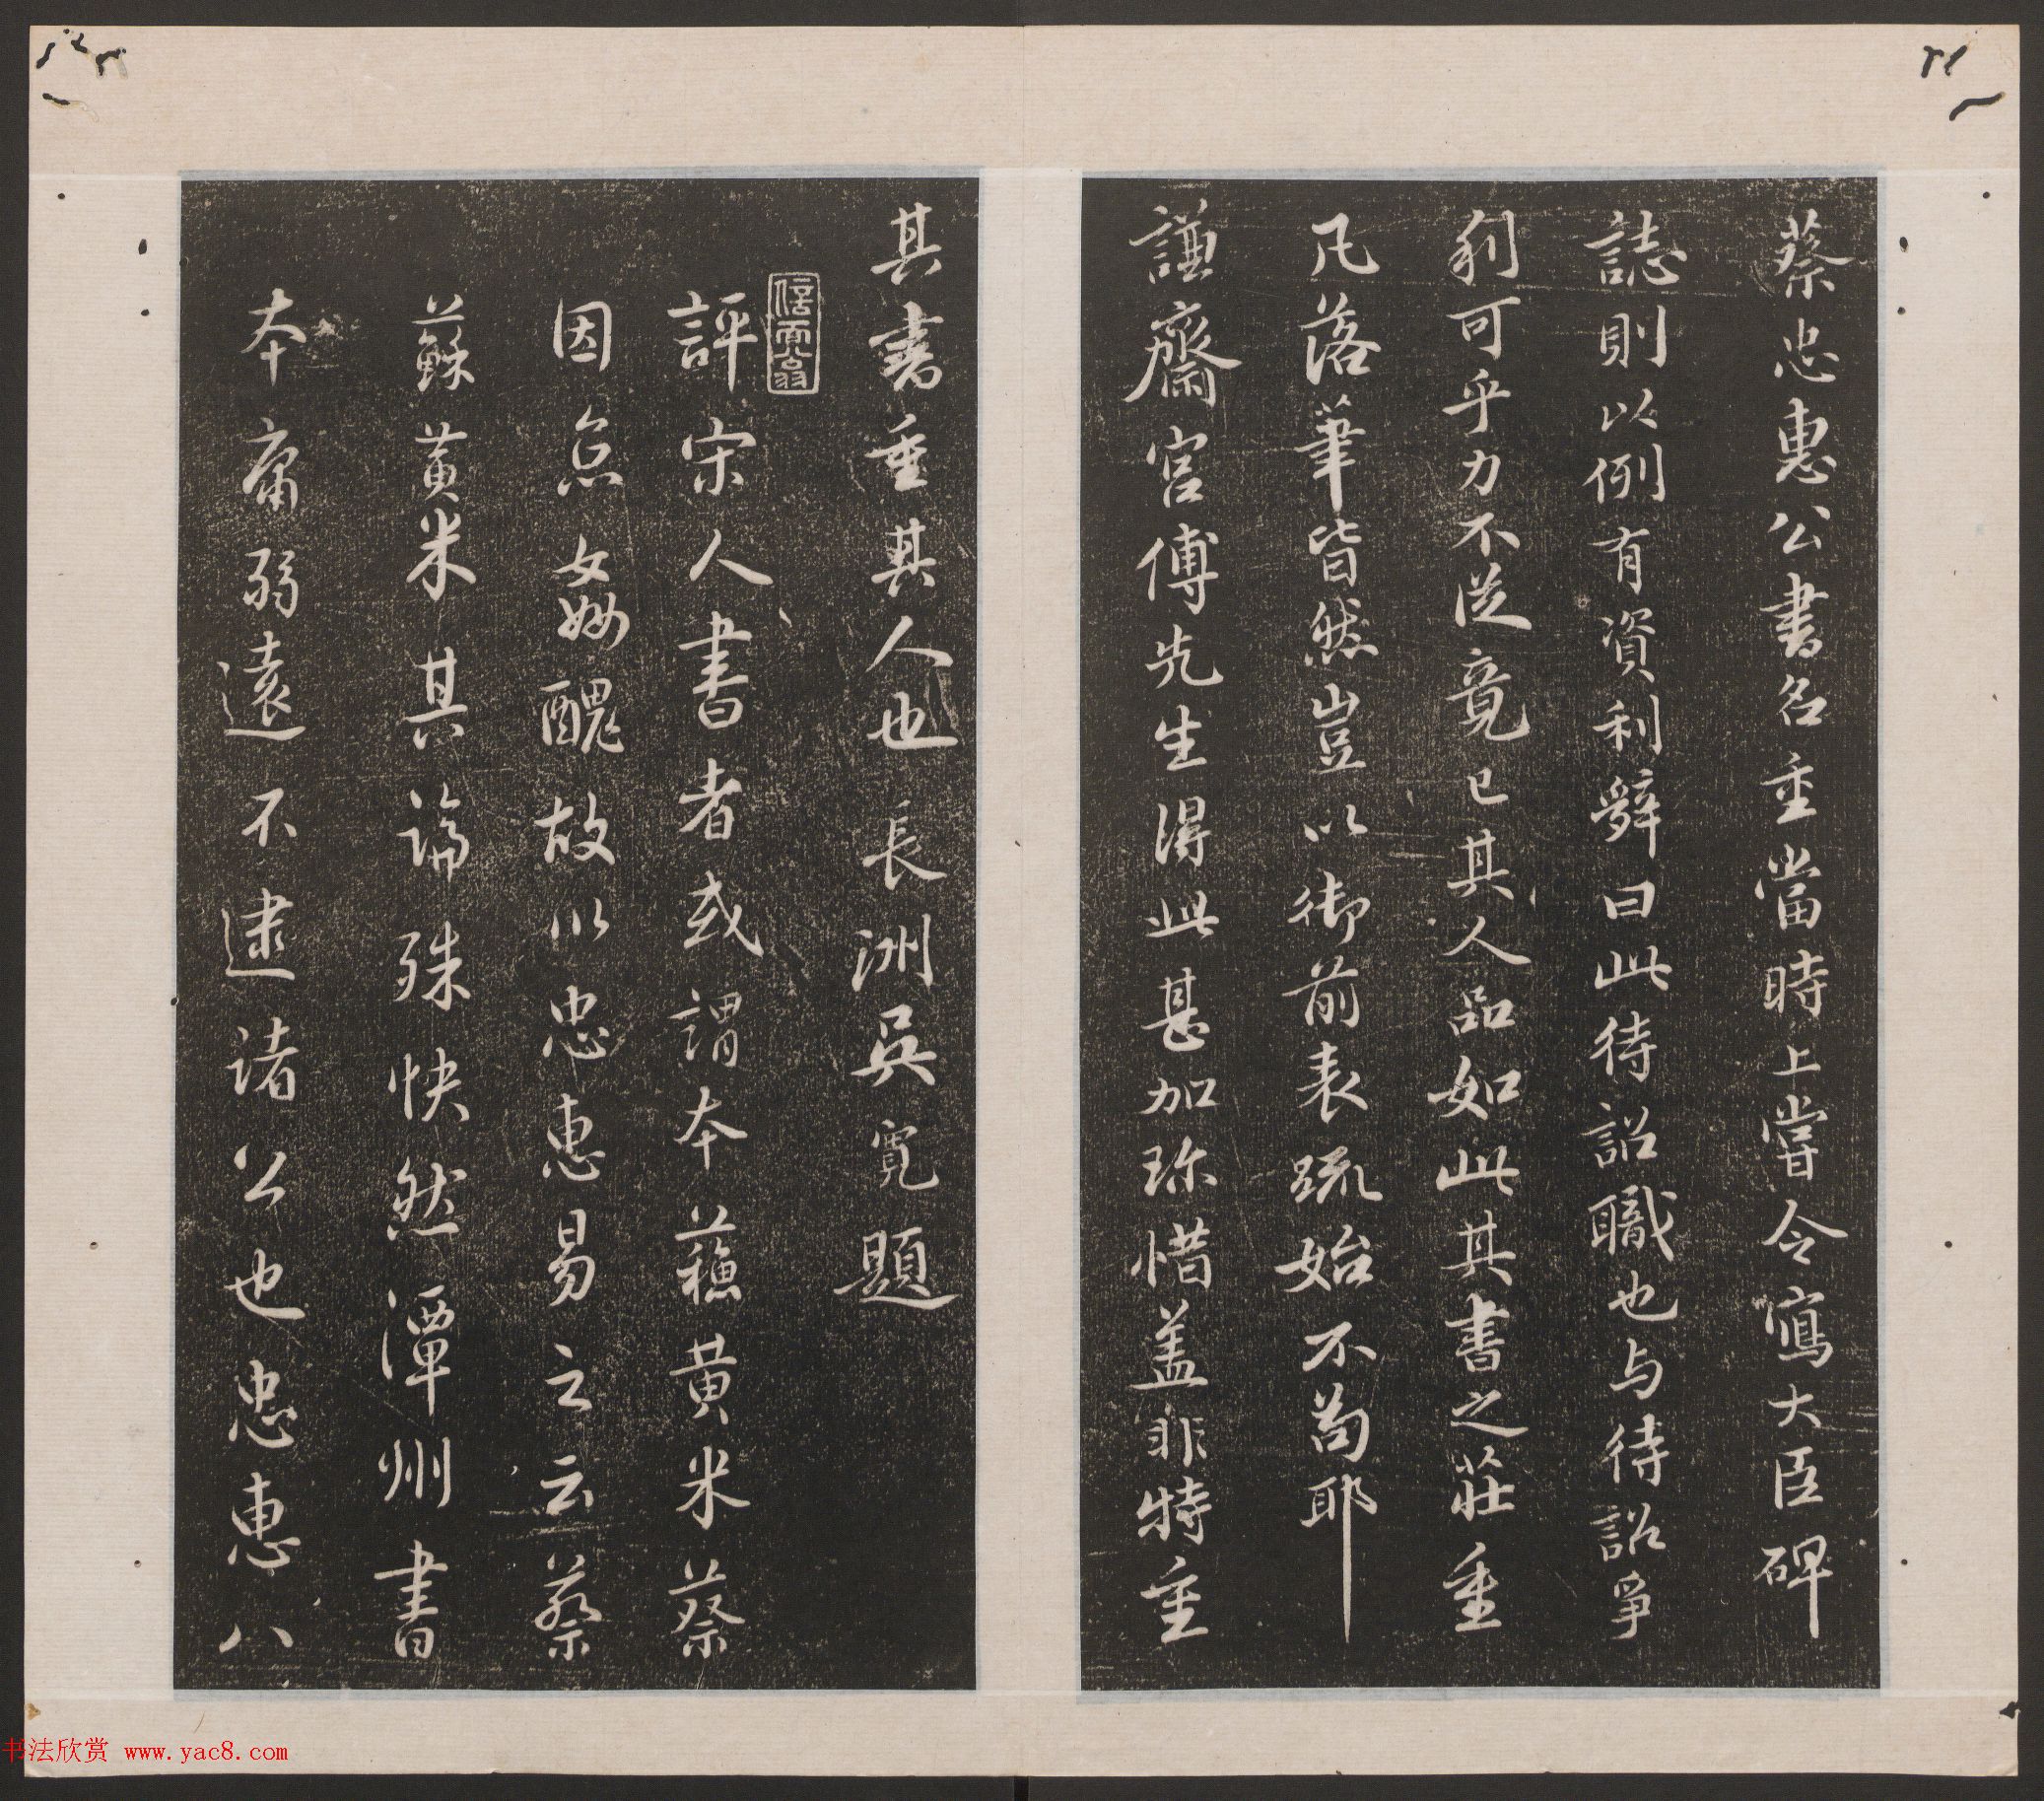 蔡忠惠公書名重當時上嘗令寫大臣碑
誌則以例有資利辭曰此待詔職也与待詔爭
利可乎力不從竟已其人品如此其書之莊重
凡落筆皆然豈以御前表疏始不苟耶
謙齋宮傅先生得此甚加珎惜盖非特重
其書重其人也長洲吳寬題
評宋人書者或謂本蘓黄米蔡
因京姦醜故以忠惠易之云蔡
蘇黄米其論殊快然潭州書
本庸弱遠不逮诸公也忠惠八
书法欣赏 www.yac8.com